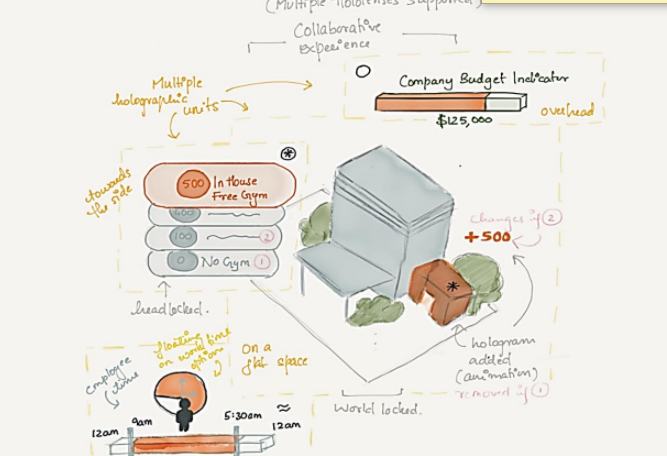 (Multiple Hololenses Supported)
Collaborative
Experience
Multiple
holographic
units
Company Budget Indicator
$125,000
overhead
towards
the side
500 In House
Free Gym
400
100 2
0 No Gym 1
headlocked.
changes if 2
+500
hologram
added
(animation)
removed if 1
World locked.
On a
flat space
floating
on world time
option
employee
time
12am
9am
5:30am
12am